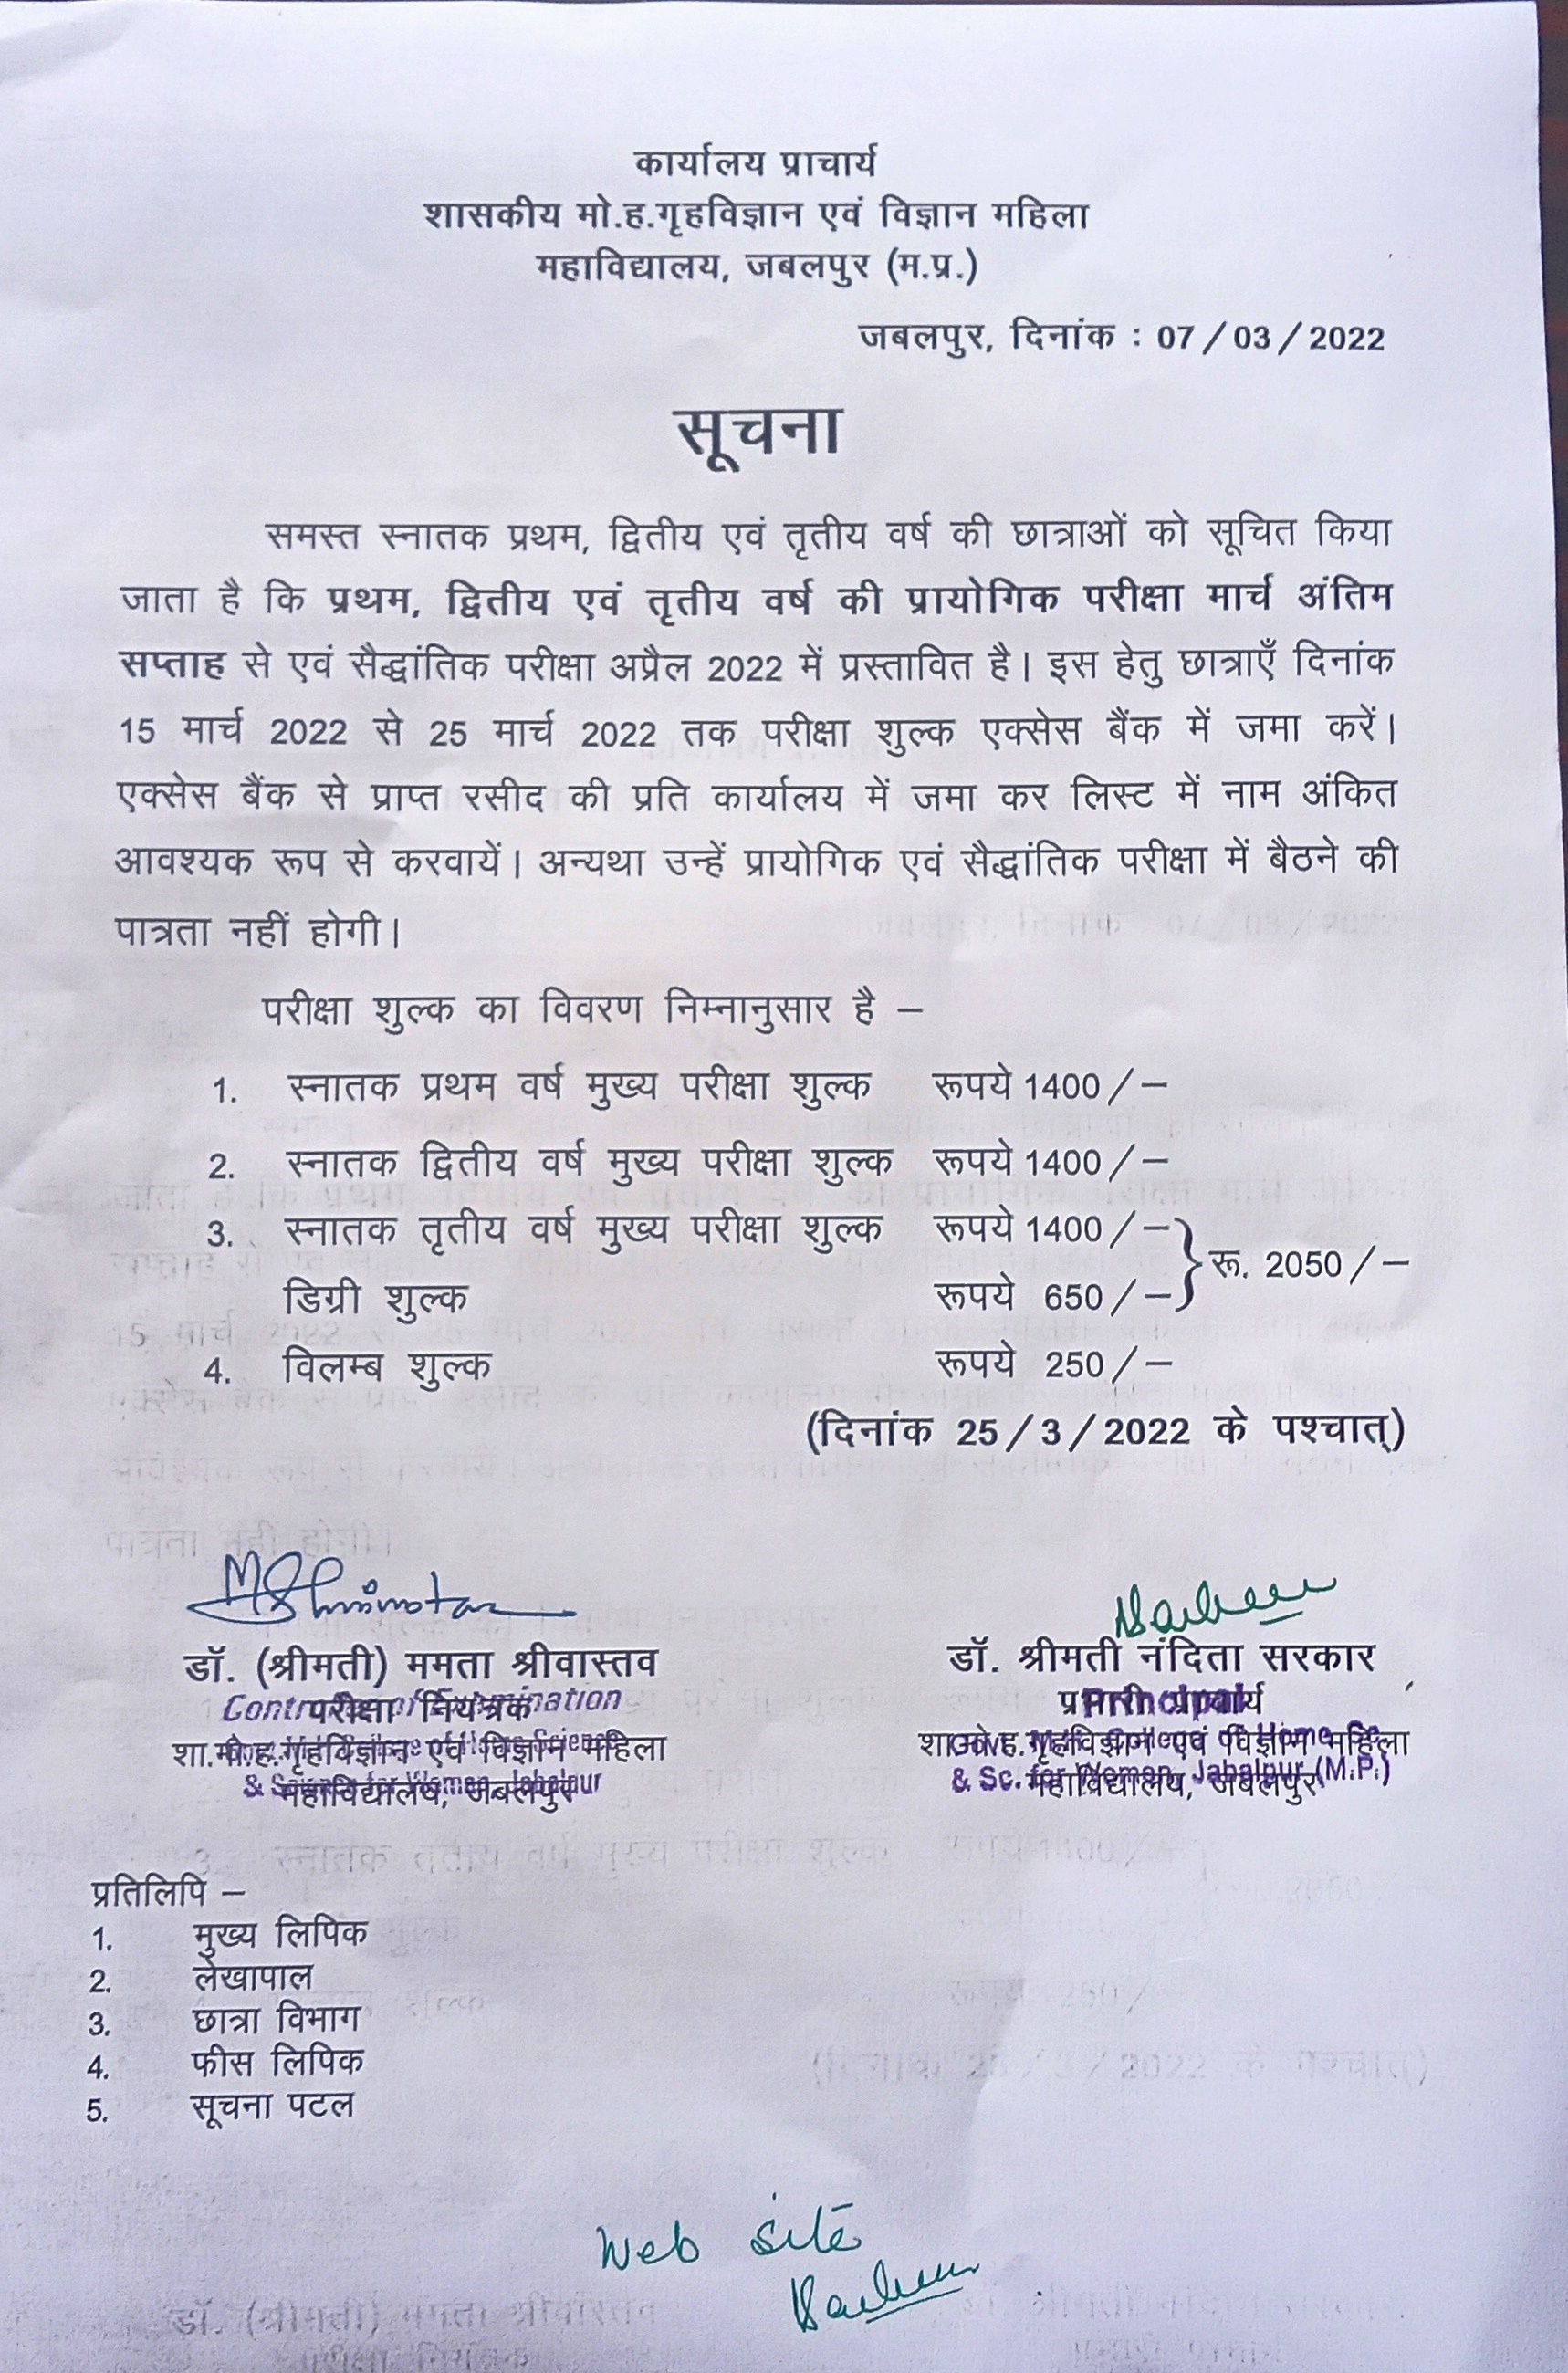 कार्यालय प्राचार्य
शासकीय मो.ह.गृहविज्ञान एवं विज्ञान महिला
महाविद्यालय, जबलपुर (म.प्र.)
जबलपुर, दिनांक : 07/03/2022
सूचना
समस्त स्नातक प्रथम, द्वितीय एवं तृतीय वर्ष की छात्राओं को सूचित किया
जाता है कि प्रथम, द्वितीय एवं तृतीय वर्ष की प्रायोगिक परीक्षा मार्च अंतिम
सप्ताह से एवं सैद्धांतिक परीक्षा अप्रैल 2022 में प्रस्तावित है। इस हेतु छात्राएँ दिनांक
15 मार्च 2022 से 25 मार्च 2022 तक परीक्षा शुल्क एक्सेस बैंक में जमा करें।
एक्सेस बैंक से प्राप्त रसीद की प्रति कार्यालय में जमा कर लिस्ट में नाम अंकित
आवश्यक रूप से करवायें। अन्यथा उन्हें प्रायोगिक एवं सैद्धांतिक परीक्षा में बैठने की
पात्रता नहीं होगी।
परीक्षा शुल्क का विवरण निम्नानुसार है –
1. स्नातक प्रथम वर्ष मुख्य परीक्षा शुल्क रूपये 1400/–
2. स्नातक द्वितीय वर्ष मुख्य परीक्षा शुल्क रूपये 1400/–
3. स्नातक तृतीय वर्ष मुख्य परीक्षा शुल्क रूपये 1400/–
रू. 2050/–
डिग्री शुल्क रूपये 650/–
4. विलम्ब शुल्क रूपये 250/–
(दिनांक 25/3/2022 के पश्चात्)
डॉ. (श्रीमती) ममता श्रीवास्तव डॉ. श्रीमती नंदिता सरकार
परीक्षा नियंत्रक प्रभारी प्राचार्य
Controller of Examination Principal
शा.मो.ह.गृहविज्ञान एवं विज्ञान महिला शा.मो.ह.गृहविज्ञान एवं विज्ञान महिला
Govt. M.H. College of Home Science Govt. M.H. College of Home Sc.
महाविद्यालय, जबलपुर महाविद्यालय, जबलपुर
& Science for Women, Jabalpur & Sc. for Women, Jabalpur (M.P.)
प्रतिलिपि –
1. मुख्य लिपिक
2. लेखापाल
3. छात्रा विभाग
4. फीस लिपिक
5. सूचना पटल
Web site